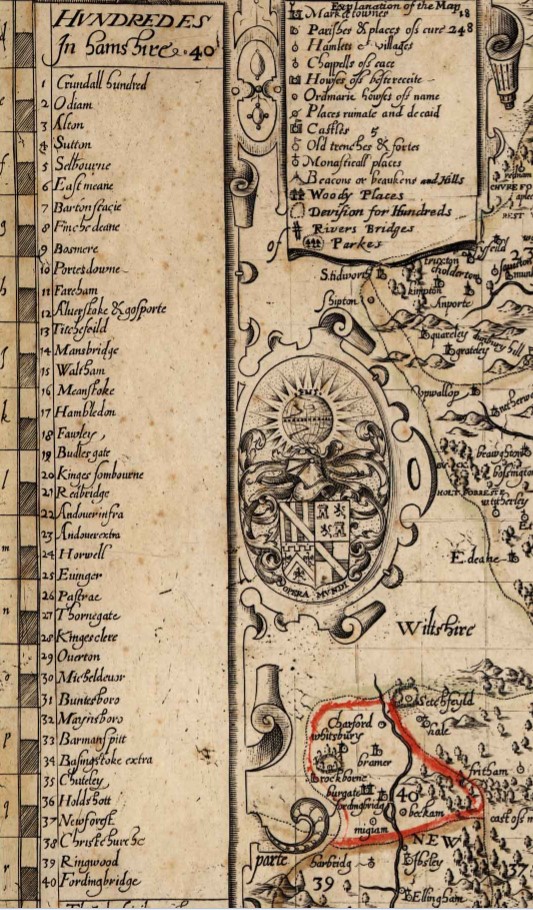 HVNDREDES
In hamshire. 40
1 Crundall hundred
2 Odiam
3 Alton
4 Sutton
5 Selbourne
6 East meane
7 Barton stacie
8 Finche deane
9 Bosmere
10 Portesdowne
11 Fareham
12 Aluerstoke & gosporte
13 Titchefeild
14 Mansbridge
15 Waltham
16 Meanstoke
17 Hambledon
18 Fawley,
19 Budlesgate
20 Kinges sombourne
21 Redbridge
22 Andouer infra
23 Andouer extra
24 Horwell
25 Euinger
26 Pastrae
27 Thornegate
28 Kingesclere
29 Ouerton
30 Micheldeuor
31 Buntesboro
32 Maynsboro
33 Barmanspitt
34 Basingstoke extra
35 Chuteley
36 Holdshott
37 Newforest
38 Christchurche
39 Ringwood
40 Fordingbridge
Explanation of the Map
Markettownes 18
Parishes & places of cure 248
Hamlets & villages
Chappells of eace
Howses of beste receite
Ordinarie howses of name
Places ruinate and decaid
Castles 5
Old trenches & fortes
Monasticall places
Beacons or beakens and Hills
Woody Places
Devision for Hundreds
Rivers Bridges
Parkes
of
Stidworth
Shipton
truxton
tholderton
kimpton
Anporte
quareley
grateley
danbury hill
opwallop
beawghton
bossington
HOLT FORREST
witherley
E. deane
OPERA MVNDI
Wiltshire
Setchfeyld
hale
Charford
whitsbury
bramer
rockborne
burgate
fordingbridg
40
beckam
migiam
fritham
NEW
parte
harbridg
39
Ibsley
37
Ellingham